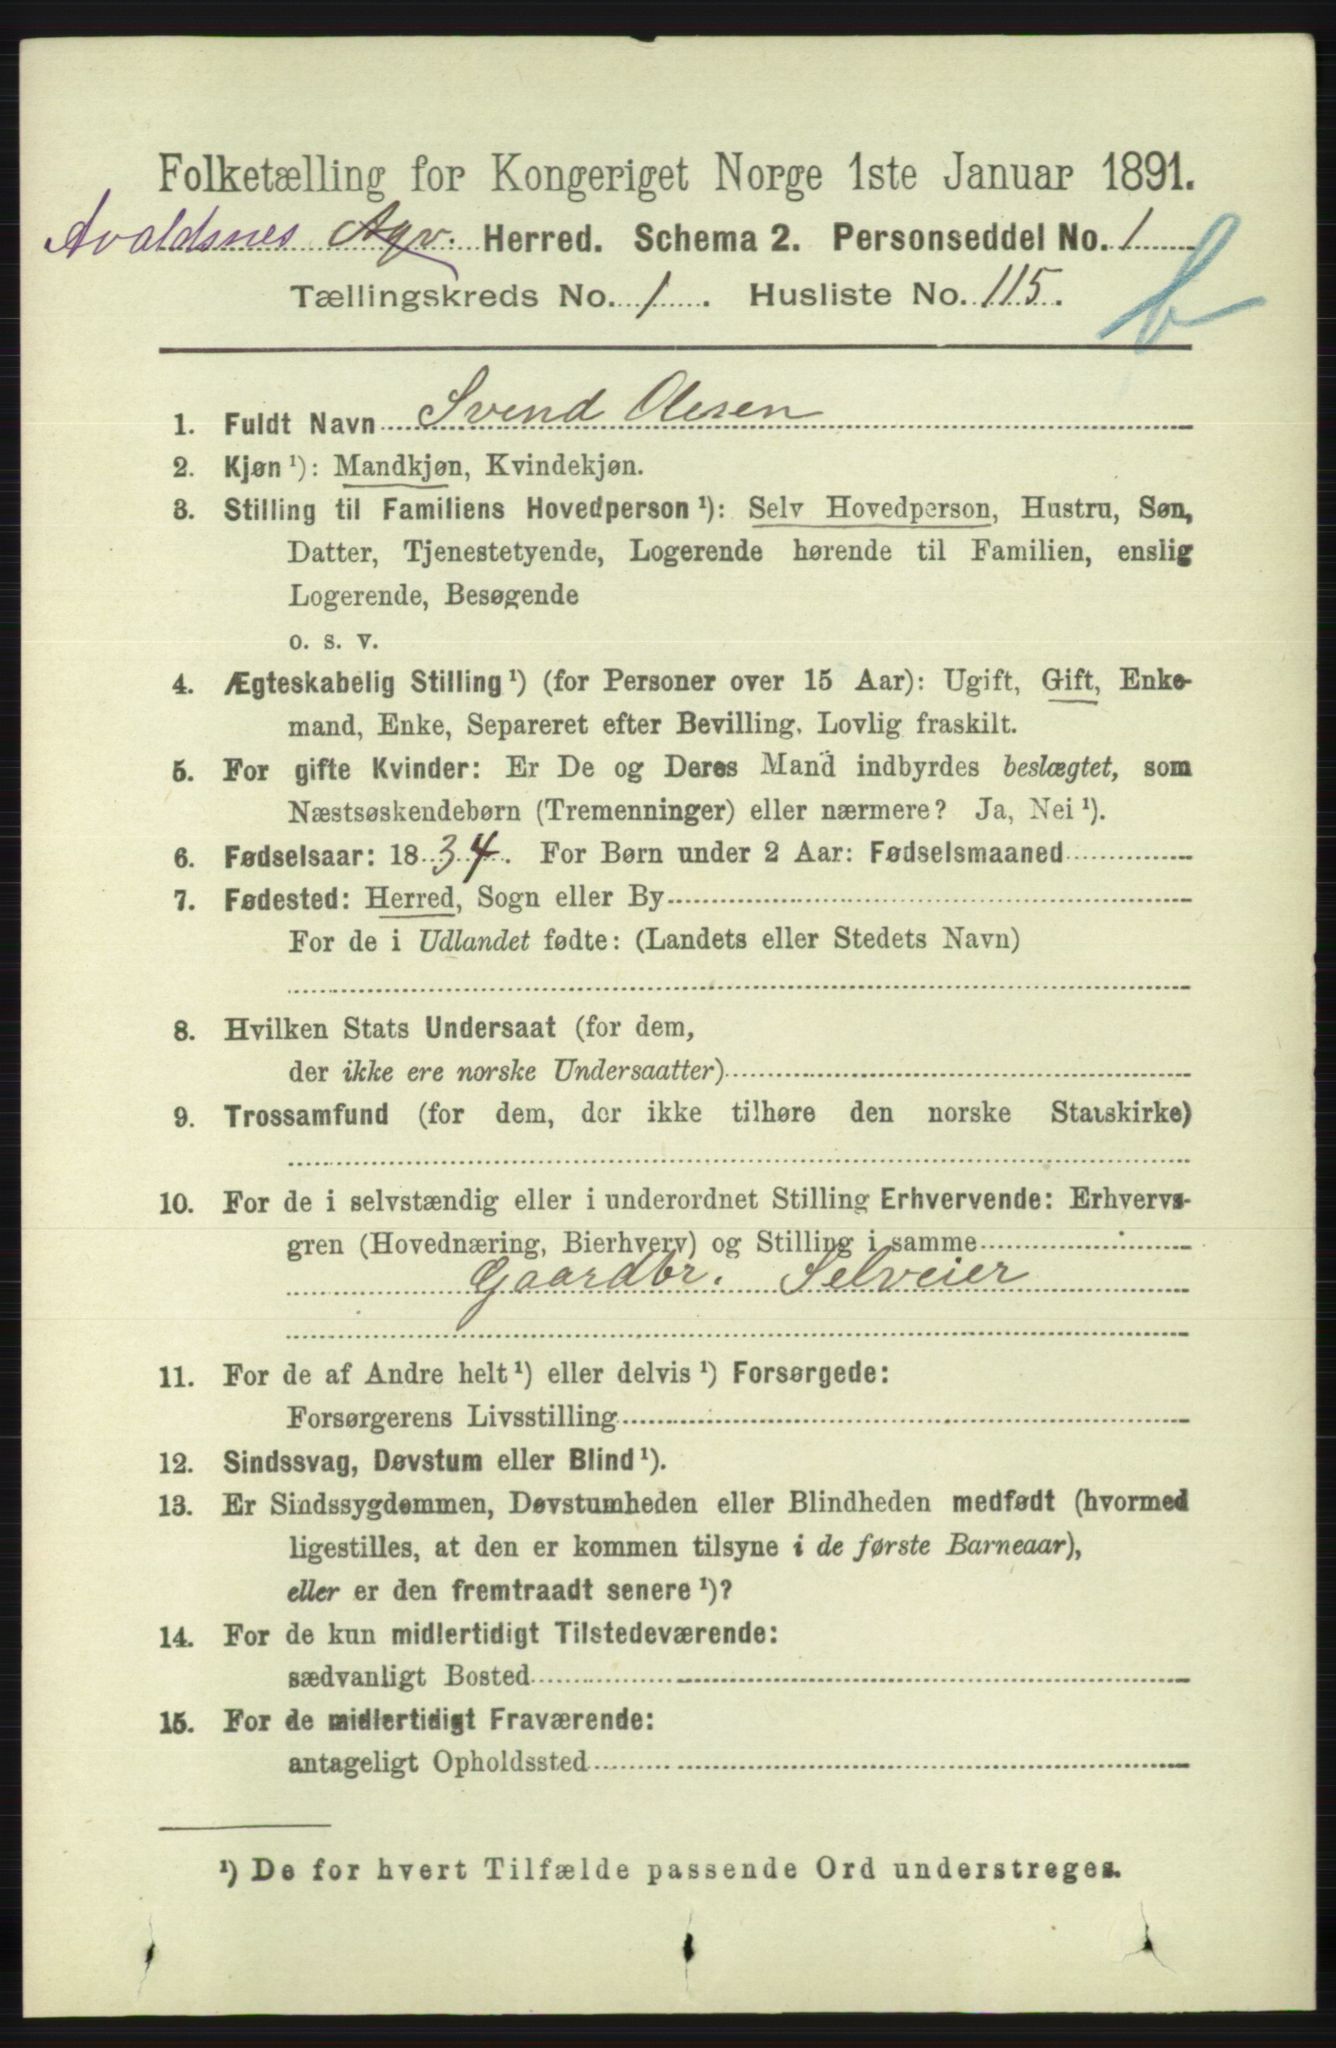 Folketælling for Kongeriget Norge 1ste Januar 1891.
Avaldsnes Agv. Herred. Schema 2. Personseddel No. 1
Tællingskreds No. 1. Husliste No. 115.
b
1. Fuldt Navn Svend Olesen
2. Kjøn ¹): Mandkjøn, Kvindekjøn.
3. Stilling til Familiens Hovedperson ¹): Selv Hovedperson, Hustru, Søn,
Datter, Tjenestetyende, Logerende hørende til Familien, enslig
Logerende, Besøgende
o. s. v.
4. Ægteskabelig Stilling ¹) (for Personer over 15 Aar): Ugift, Gift, Enke-
mand, Enke, Separeret efter Bevilling, Lovlig fraskilt.
5. For gifte Kvinder: Er De og Deres Mand indbyrdes beslægtet, som
Næstsøskendebørn (Tremenninger) eller nærmere? Ja, Nei ¹).
6. Fødselsaar: 1834. For Børn under 2 Aar: Fødselsmaaned
7. Fødested: Herred, Sogn eller By
For de i Udlandet fødte: (Landets eller Stedets Navn)
8. Hvilken Stats Undersaat (for dem,
der ikke ere norske Undersaatter)
9. Trossamfund (for dem, der ikke tilhøre den norske Statskirke)
10. For de i selvstændig eller i underordnet Stilling Erhvervende: Erhvervs-
gren (Hovednæring, Bierhverv) og Stilling i samme
Gaardbr. Selveier
11. For de af Andre helt ¹) eller delvis ¹) Forsørgede:
Forsørgerens Livsstilling
12. Sindssvag, Døvstum eller Blind ¹).
13. Er Sindssygdommen, Døvstumheden eller Blindheden medfødt (hvormed
ligestilles, at den er kommen tilsyne i de første Barneaar),
eller er den fremtraadt senere ¹)?
14. For de kun midlertidigt Tilstedeværende:
sædvanligt Bosted
15. For de midlertidigt Fraværende:
antageligt Opholdssted
¹) De for hvert Tilfælde passende Ord understreges.